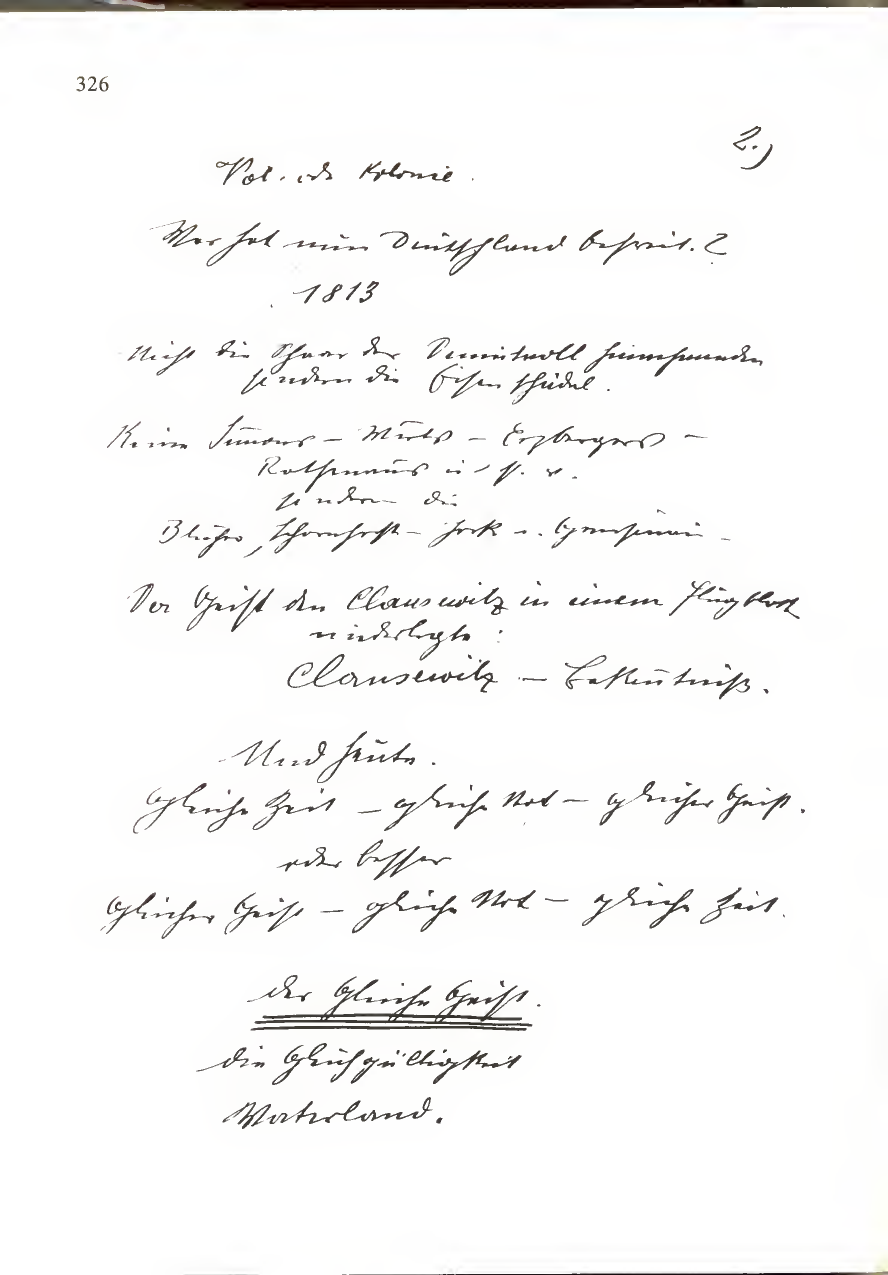 326
2.)
Vol. od. Kolonie.
Wer hat nun Deutschland befreit.?
1813
Nicht die Schaar der Demutvoll
sondern die Eisenschädel.
Keine Simons – Wirts – Erzbergers –
Rathenaus u. s. w.
sondern die
Blücher, Scharnhorst – York u. Gneisenau –
Der Geist den Clausewitz in einem Flugblatt
niederlegte:
Clausewitz – Bekenntniß.
Und heute.
Gleiche Zeit – gleiche Not – gleicher Geist.
oder besser
Gleicher Geist – gleiche Not – gleiche Zeit.
der Gleiche Geist.
die Gleichgültigkeit
Vaterland.